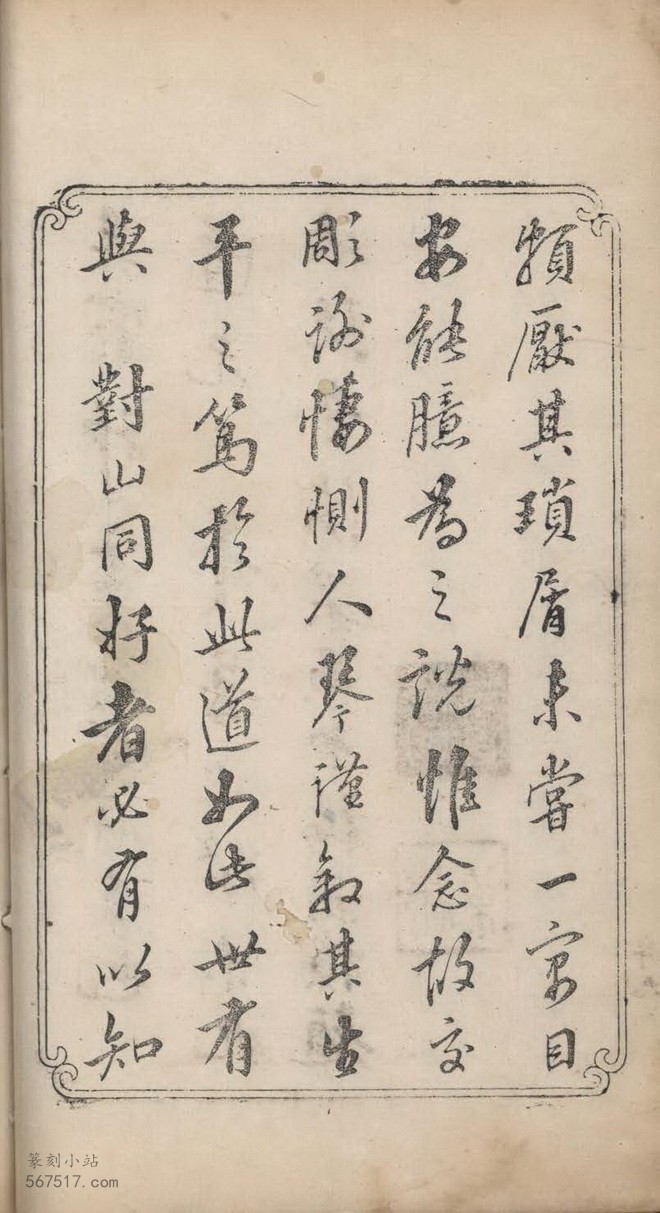 頻厭其瑣屑未嘗一寓目
安能臆為之說惟念故交
彫謝悽惻人琴謹敘其生
平之篤於此道如此世有
與 對山同好者必有以知
篆刻小站
567517.com